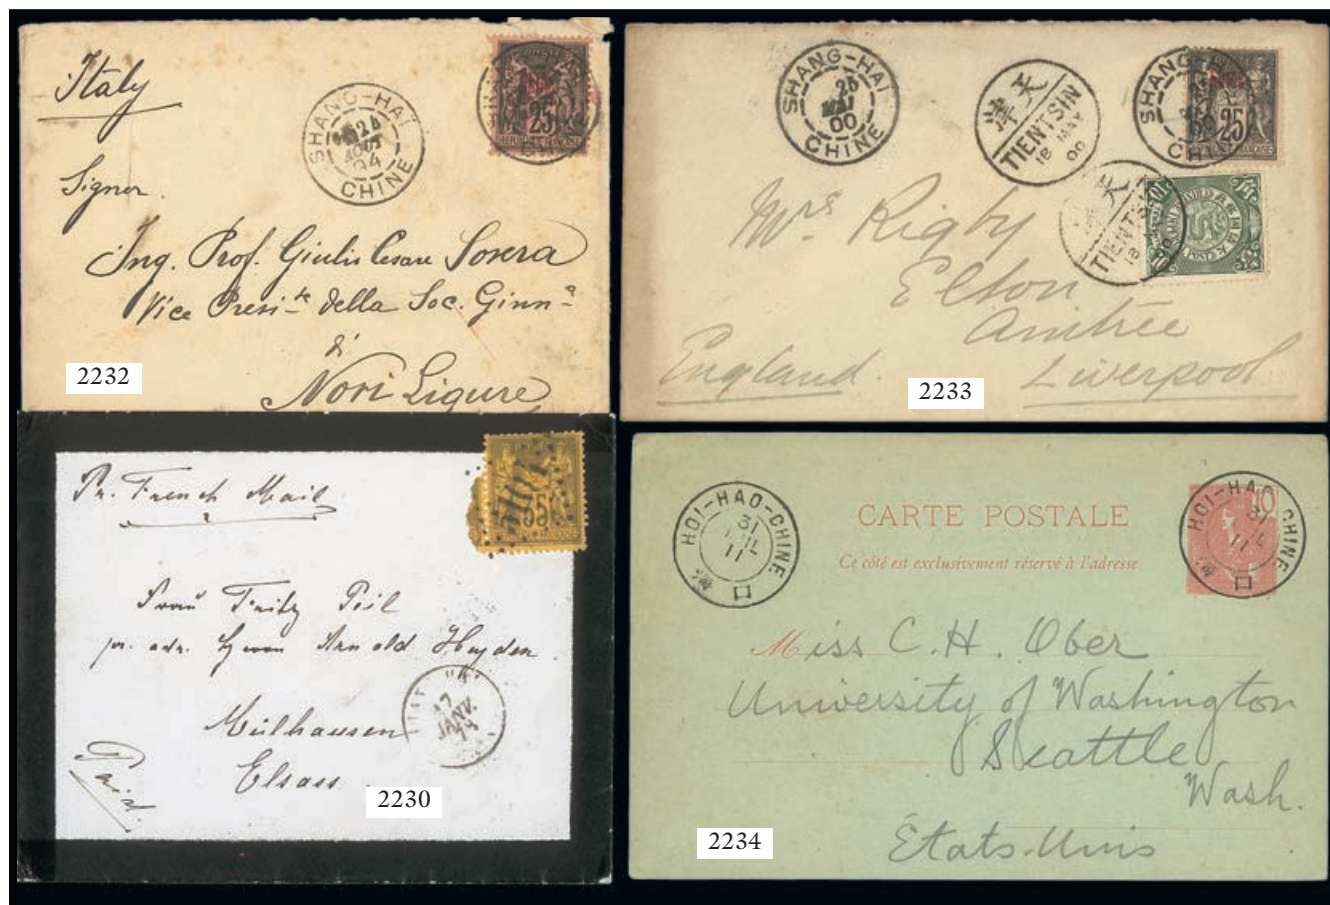 Italy
SHANG-HAI
24
AOUT
04
CHINE
25
Signor
Ing. Prof. Giulio Cesare Sorera
Vice Presi-te della Soc. Ginn-a
di
Novi Ligure
2232
SHANG-HAI
25
MAI
00
CHINE
天津
TIENTSIN
18 MAY
00
SHANG-HAI
CHINE
25
天
TIENTSIN
18
Mrs Rigby
Elton
Aintree
England. Liverpool
2233
Pr. French Mail
35
Frau Fritz
pr. adr. Herrn Arnold Heyden
Mülhausen
Elsass
Paid.
17
JANV.
2230
HOI-HAO-CHINE
31
11
口
CARTE POSTALE
Ce côté est exclusivement réservé à l'adresse
10
HOI-HAO-CHINE
31
11
口
Miss C. H. Ober
University of Washington
Seattle
Wash.
États-Unis
2234